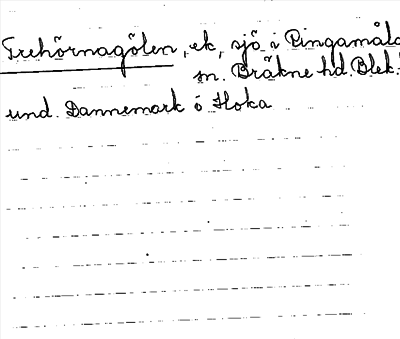 Trehörnagölen, ek, sjö i Ringamåla
sn. Bräkne hd. Blek.
und. Dannemark o Hoka